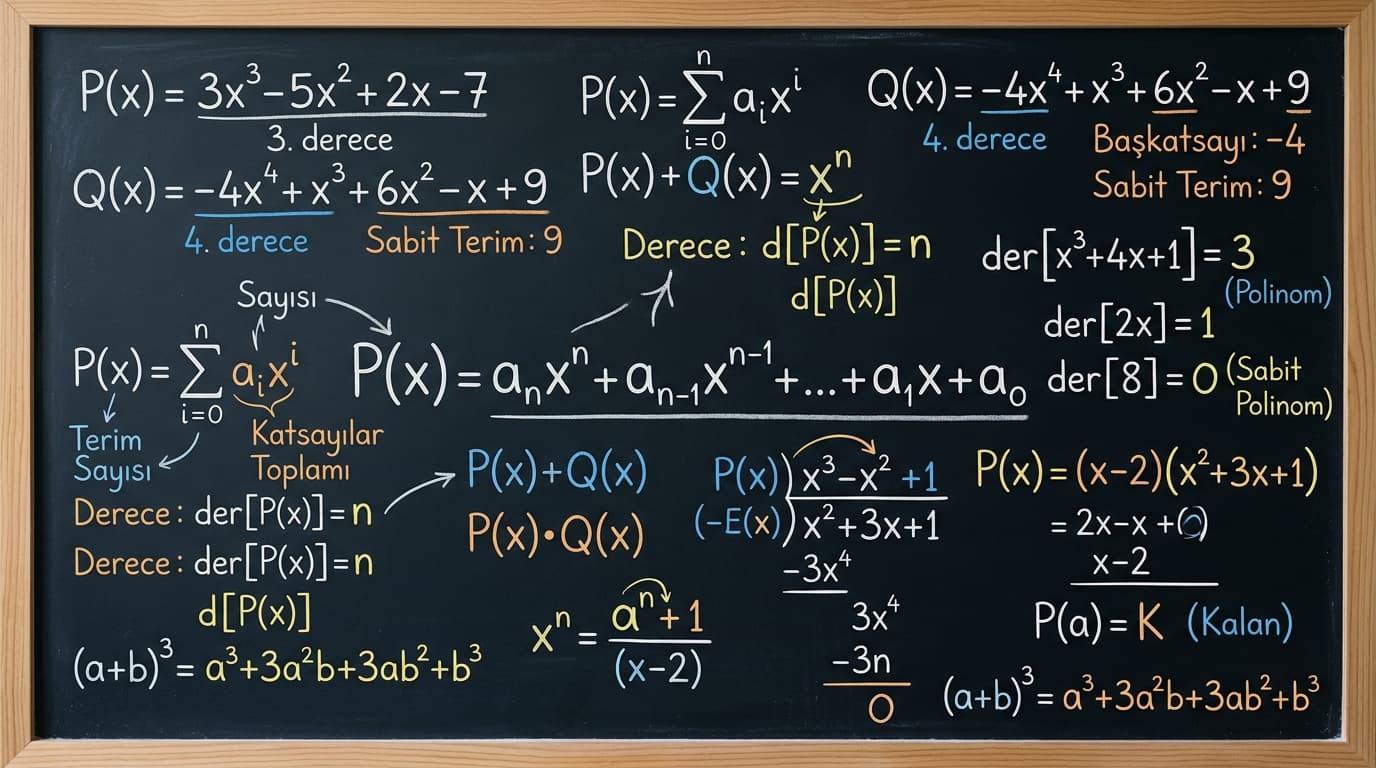 P(x) = 3x³ − 5x² + 2x − 7
3. derece
Q(x) = −4x⁴ + x³ + 6x² − x + 9
4. derece
Sabit Terim: 9
P(x) = ∑ aᵢxⁱ
n
i=0
P(x) + Q(x) = xⁿ
Derece: d[P(x)] = n
d[P(x)]
Q(x) = −4x⁴ + x³ + 6x² − x + 9
4. derece
Başkatsayı: −4
Sabit Terim: 9
der[x³+4x+1] = 3
(Polinom)
der[2x] = 1
der[8] = 0 (Sabit
Polinom)
Sayısı
n
P(x) = ∑ aᵢxⁱ
i=0
Terim
Sayısı
Katsayılar
Toplamı
P(x) = aₙxⁿ + aₙ₋₁xⁿ⁻¹ + ... + a₁x + a₀
Derece: der[P(x)] = n
Derece: der[P(x)] = n
d[P(x)]
(a+b)³ = a³+3a²b+3ab²+b³
P(x)+Q(x)
P(x)•Q(x)
xⁿ = aⁿ+1
(x−2)
P(x)) x³−x² +1
(−E(x)) x²+3x+1
−3x⁴
3x⁴
−3n
0
P(x) = (x−2)(x²+3x+1)
= 2x−x +(0)
x−2
P(a) = K (Kalan)
(a+b)³ = a³+3a²b+3ab²+b³